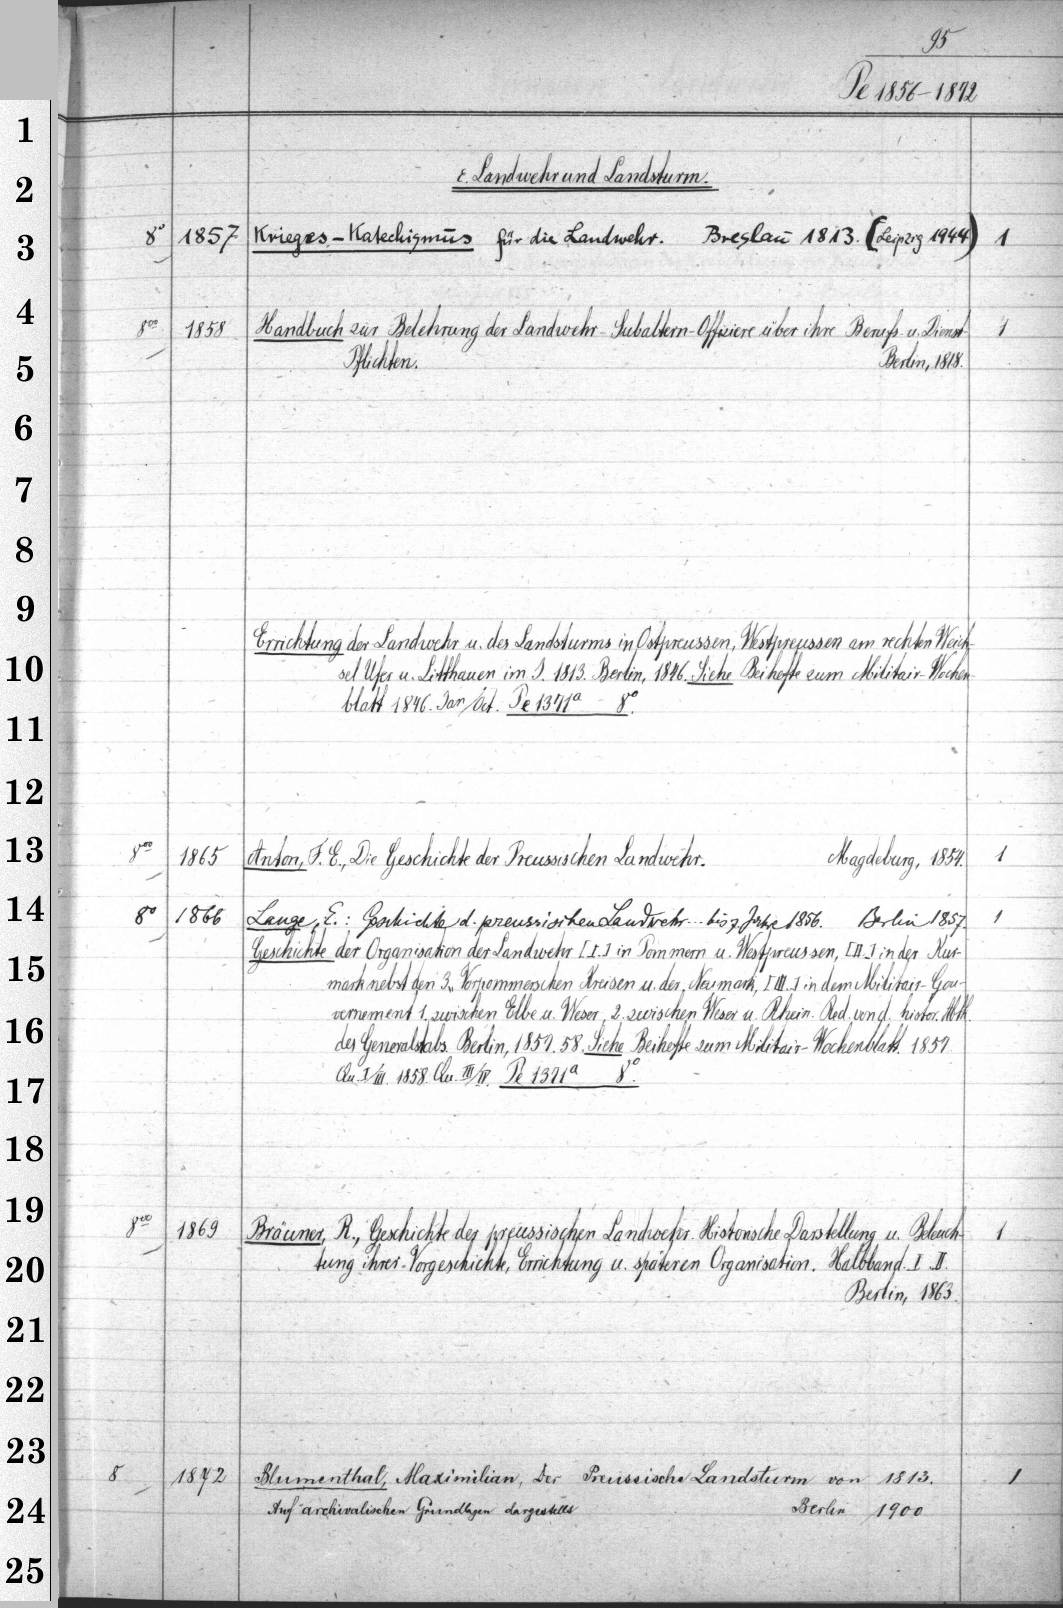 95
Pe 1856-1872
1
ε. Landwehr und Landsturm.
2
3 8° 1857 Krieges-Katechismus für die Landwehr. Breslau 1813. (Leipzig 1944) 1
4 8vo 1858 Handbuch zur Belehrung der Landwehr-Subaltern-Offiziere über ihre Berufs- u. Dienst- 1
5 Pflichten. Berlin, 1818.
6
7
8
9
Errichtung der Landwehr u. des Landsturms in Ostpreussen, Westpreussen am rechten Weich-
10 sel Ufer u. Litthauen im J. 1813. Berlin, 1846. Siehe Beihefte zum Militair-Wochen-
blatt 1846. Jan/Oct. Pe 1371a 8°.
11
12
13 8vo 1865 Anton, F. E., Die Geschichte der Preussischen Landwehr. Magdeburg, 1854. 1
14 8° 1866 Lange, E.: Geschichte d. preussischen Landwehr... bis z. Jahre 1856. Berlin 1857. 1
Geschichte der Organisation der Landwehr [I.] in Pommern u. Westpreussen, [II.] in der Kur-
15 mark nebst den 3 Vorpommerschen Kreisen u. der Neumark, [III.] in dem Militair-Gou-
vernement 1. zwischen Elbe u. Weser, 2. zwischen Weser u. Rhein. Red. von d. histor. Abth.
16 des Generalstabs. Berlin, 1857. 58. Siehe Beihefte zum Militair-Wochenblatt. 1857
17 Qu. I/III. 1858. Qu. III/IV. Pe 1371a 8°.
18
19 8vo 1869 Bräuner, R., Geschichte der preussischen Landwehr. Historische Darstellung u. Beleuch- 1
20 tung ihrer Vorgeschichte, Errichtung u. späteren Organisation. Halbband. I. II.
Berlin, 1863.
21
22
23
8 1872 Blumenthal, Maximilian, Der Preussische Landsturm von 1813. 1
24 Auf archivalischen Grundlagen dargestellt Berlin 1900
25